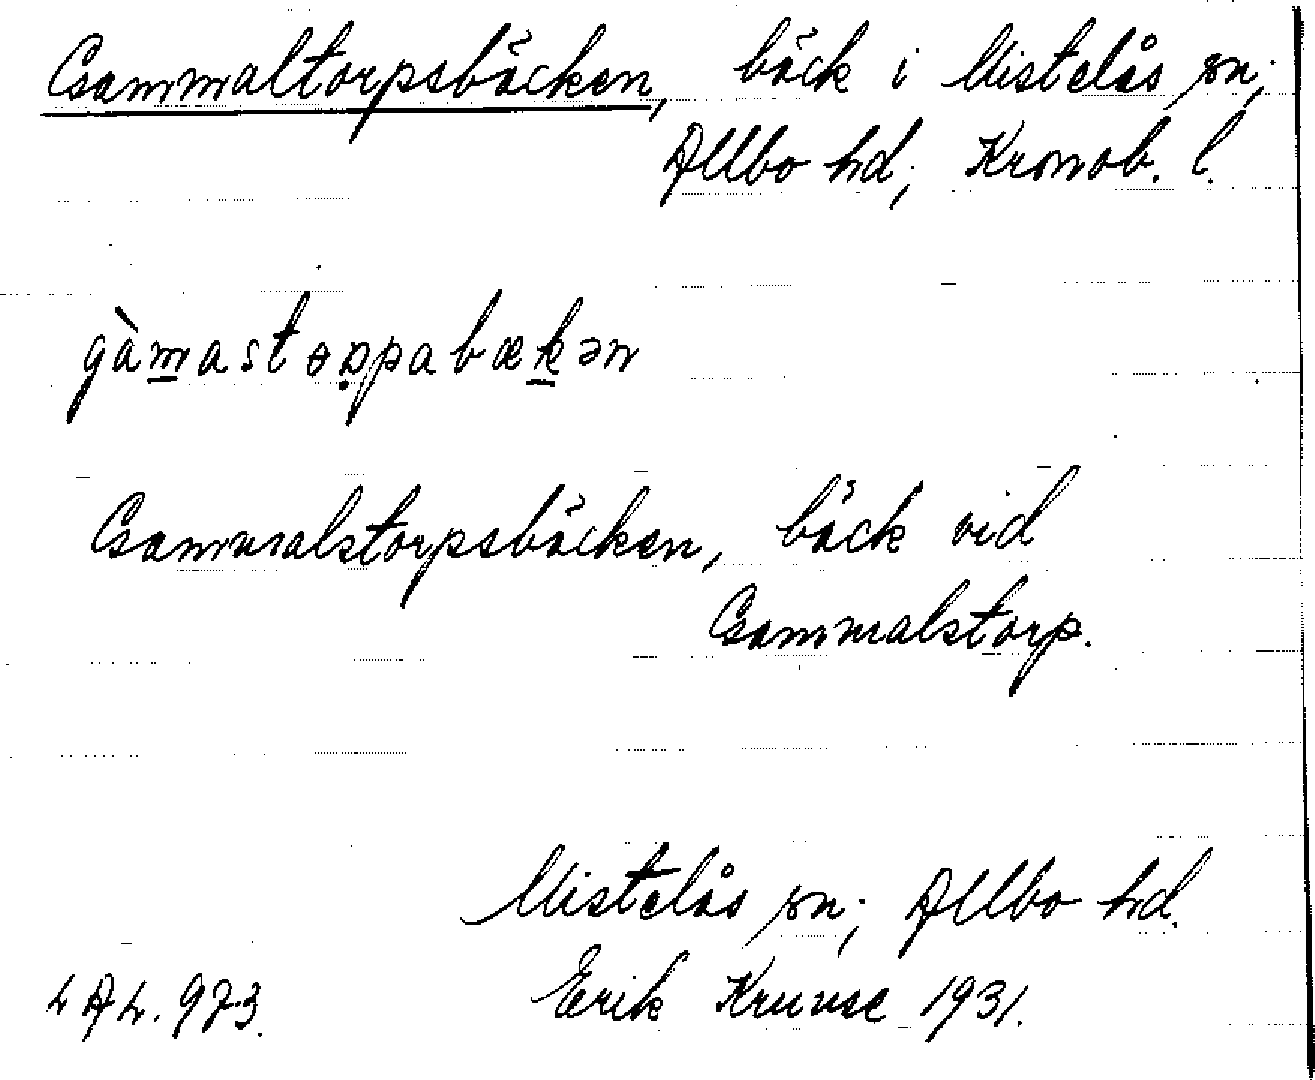 Gammaltorpsbäcken, bäck i Mistelås sn;
Allbo hd; Kronob. l.
gàmastɵppabækən
Gammalstorpsbäcken, bäck vid
Gammalstorp.
Mistelås sn; Allbo hd.
LAL. 973. Erik Kruuse 1931.